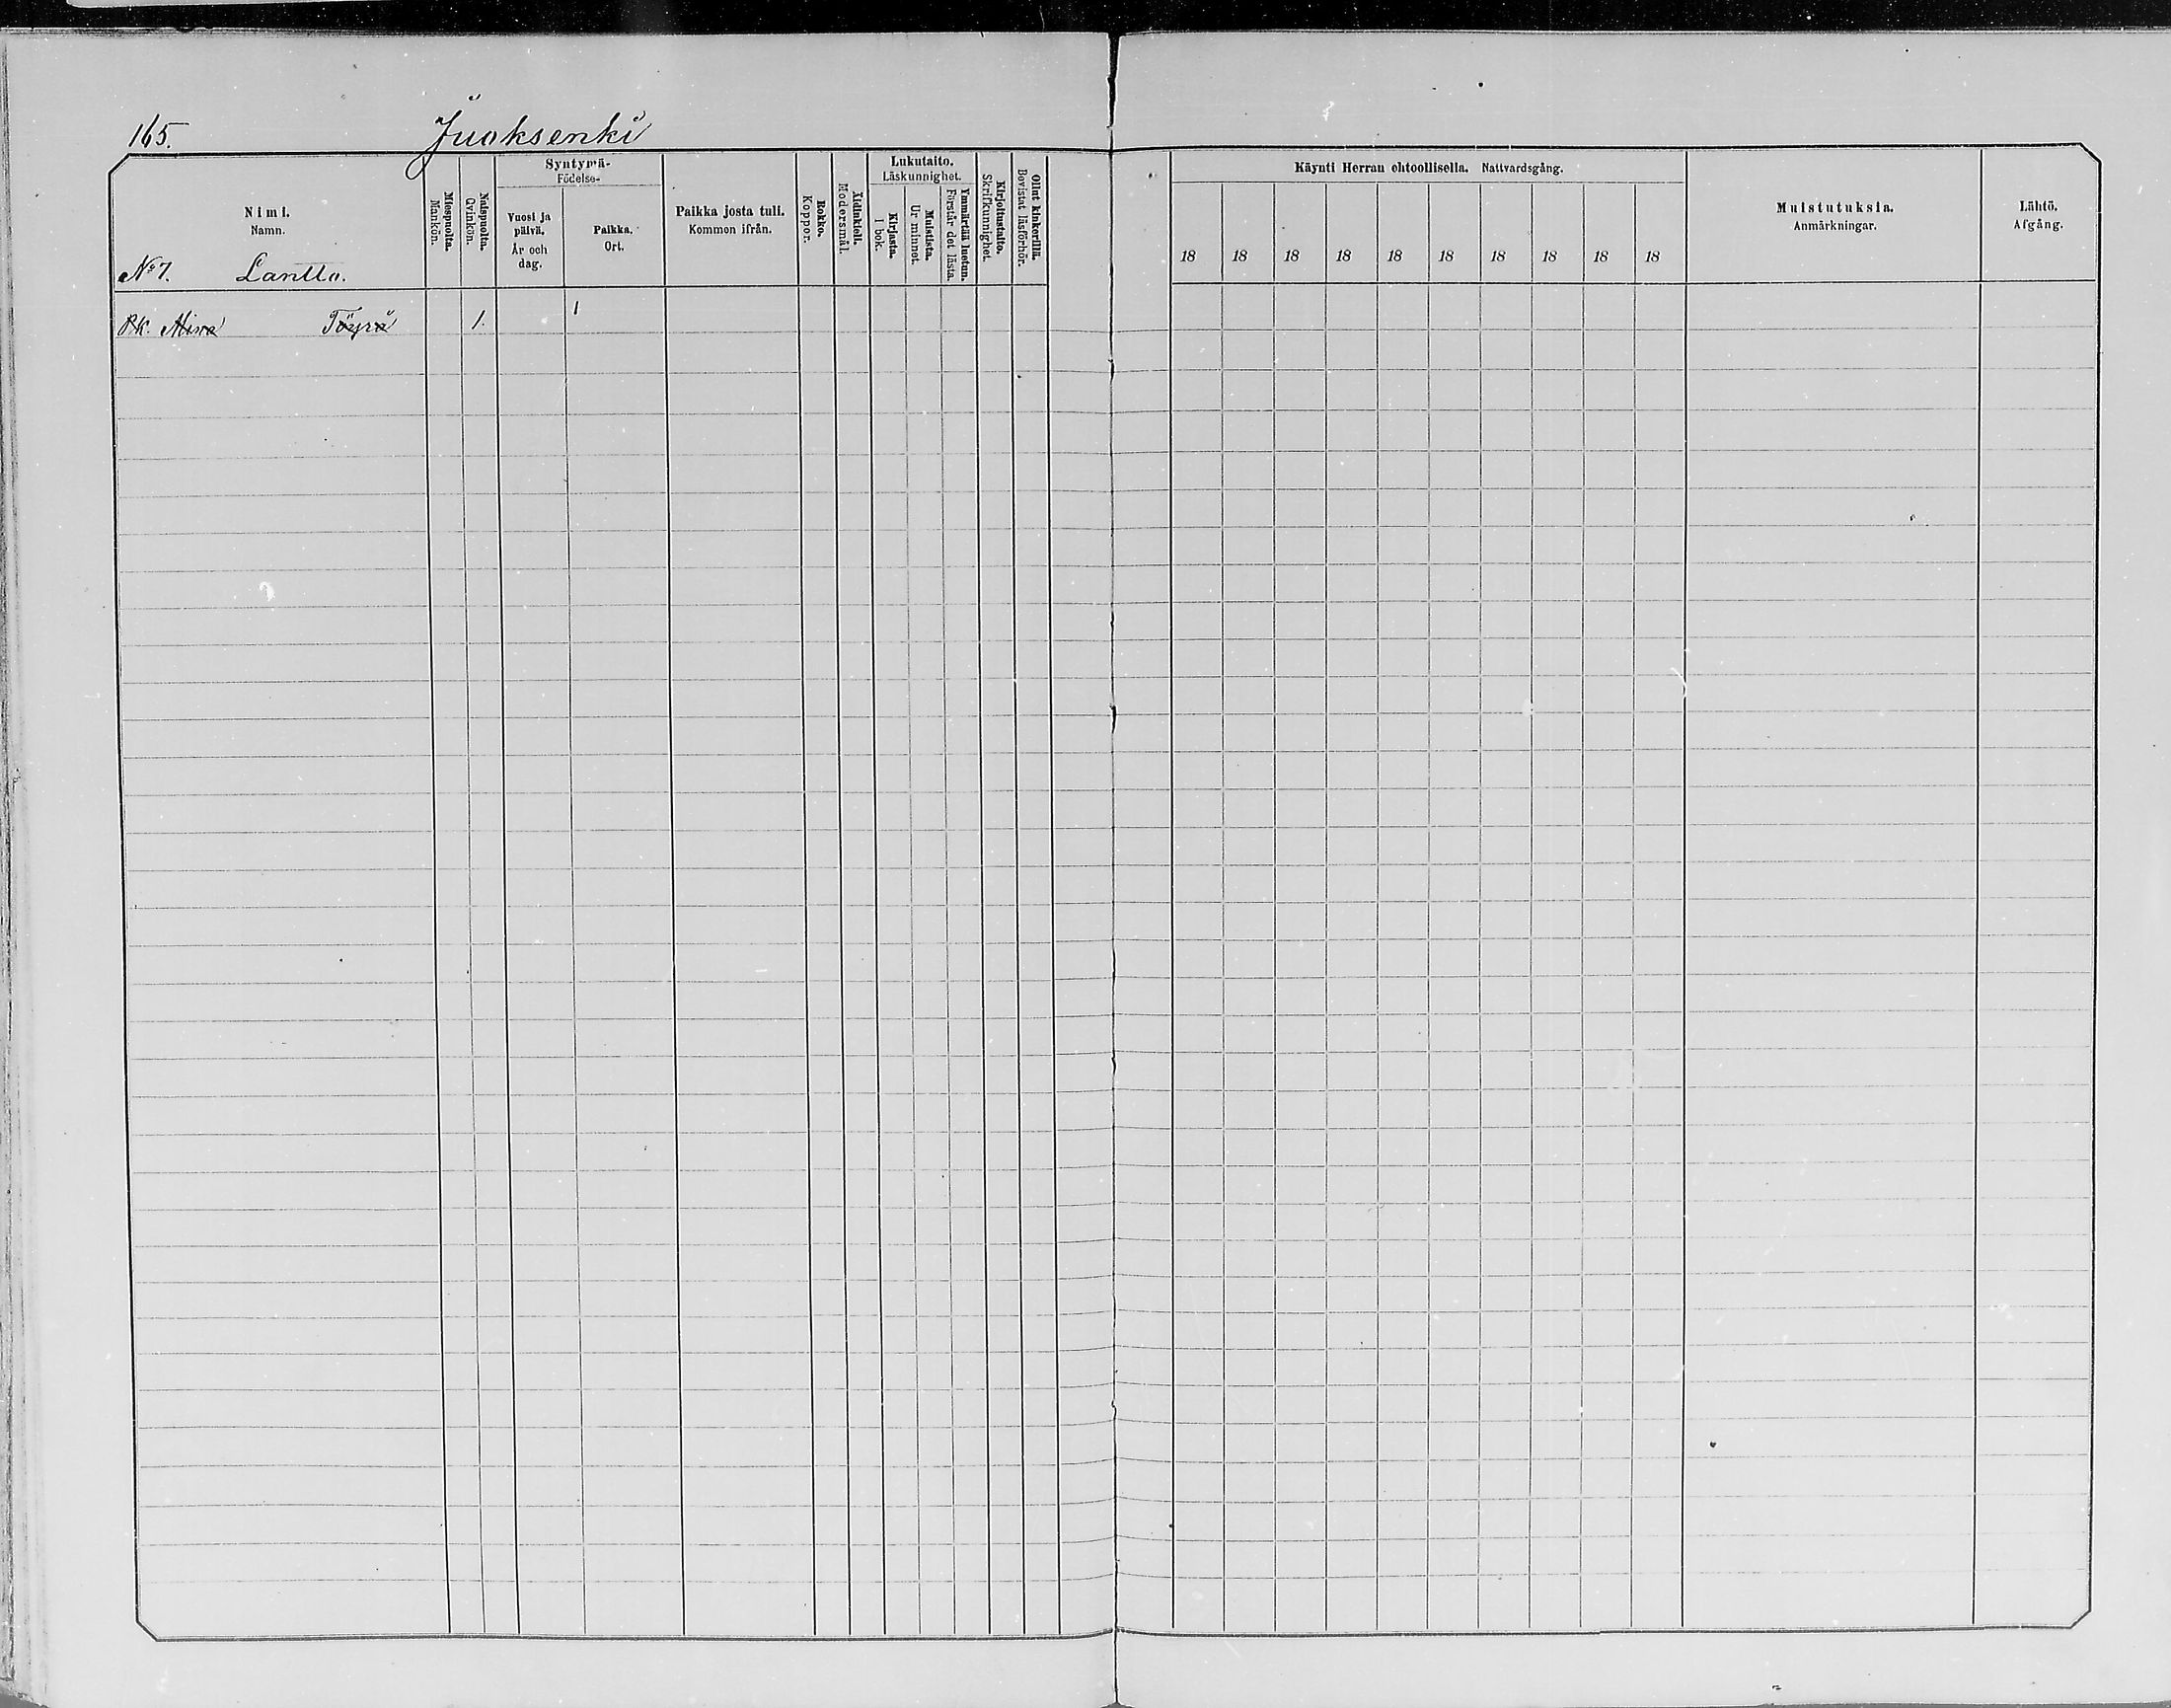 165. Juoksenki
Nimi.
Namn.
No 7. Lantto.
Miespuolta.
Mankön.
Naispuolta.
Qvinkön.
Syntymä-
Födelse-
Vuosi ja
päivä.
År och
dag.
Paikka.
Ort.
Paikka josta tuli.
Kommon ifrån.
Rokko.
Koppor.
Äidinkieli.
Modersmål.
Lukutaito.
Läskunnighet.
Kirjasta.
I bok.
Muistista.
Ur minnet.
Ymmärtää luetun.
Förstår det lästa.
Kirjoitustaito.
Skrifkunnighet.
Ollut kinkerillä.
Bevistat läsförhör.
Käynti Herran ehtoollisella. Nattvardsgång.
18 18 18 18 18 18 18 18 18 18
Muistutuksia.
Anmärkningar.
Lähtö.
Afgång.
Pk. Mina Töyrä 1.